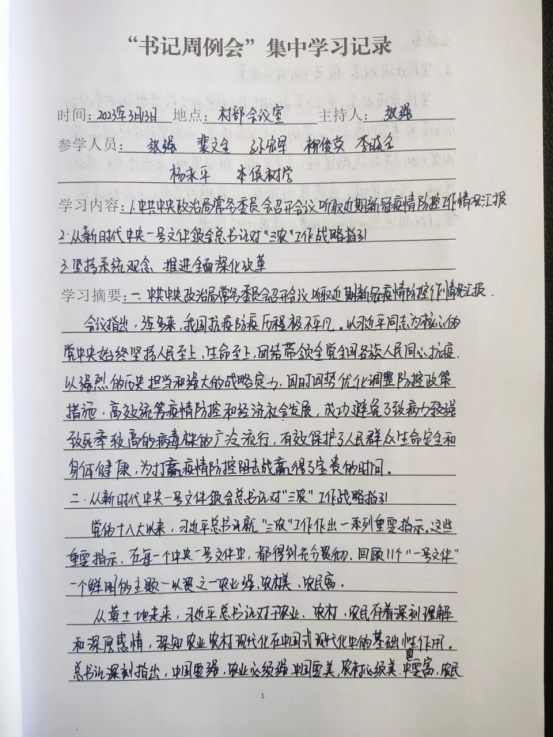 “书记周例会”集中学习记录
时间：2023年3月13日 地点：村部会议室 主持人：张强
参学人员：张强 裴文全 孙宏军 柳俊英
杨永平 李侯树学
学习内容：1.中共中央政治局常务委员会召开会议 听取近期新冠疫情防控工作情况汇报
2.从新时代中央一号文件领会总书记对“三农”工作战略指引
3.坚持系统观念，推进全面深化改革
学习摘要：一.中共中央政治局常务委员会召开会议听取近期新冠疫情防控工作情况汇报.
会议指出，三年多来，我国抗疫防疫历程极不平凡。以习近平同志为核心的
党中央始终坚持人民至上、生命至上，团结带领全党全国各族人民同心抗疫.
以强烈的历史担当和强大的战略定力，因时因势优化调整防控政策
措施，高效统筹疫情防控和经济社会发展，成功避免了致病力较强
致死率较高的病毒株的广泛流行，有效保护了人民群众生命安全和
身体健康，为打赢疫情防控阻击战赢得了宝贵的时间。
二.从新时代中央一号文件领会总书记对“三农”工作战略指引
党的十八大以来，习近平总书记就“三农”工作作出一系列重要指示，这些
重要指示，在每一个中央一号文件中，都得到充分贯彻。回顾11个“一号文件”
一个鲜明的主题一以贯之—农业强，农村美，农民富。
从黄土地走来，习近平总书记对于农业、农村、农民有着深刻理解
和深厚感情，深知农业农村现代化在中国式现代化中的基础性作用。
总书记深刻指出，中国要强，农业必须强 中国要美，农村必须美，中国要富，农民
1